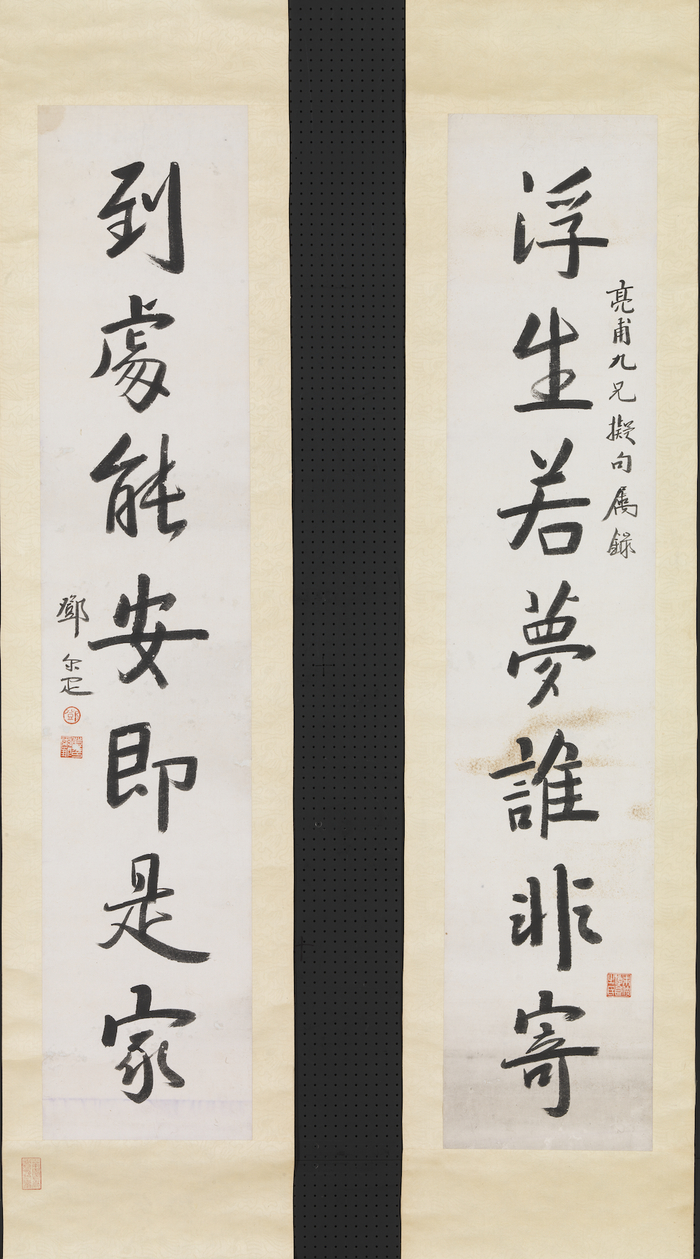 亮甫九兄擬句屬錄
浮生若夢誰非寄
到處能安即是家
鄧尔疋